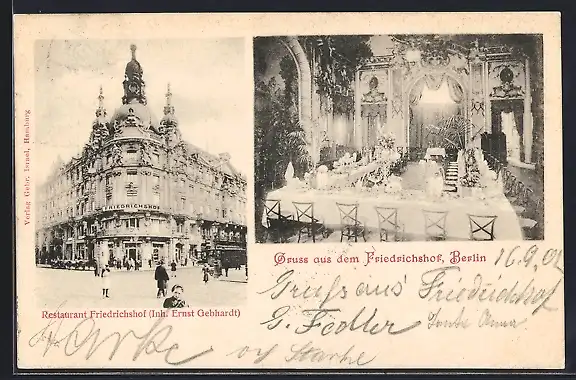 Verlag Gebr. Isrnel, Hamburg
FRIEDRICHSHOF
Restaurant Friedrichshof (Inh. Ernst Gebhardt)
Gruss aus dem Friedrichshof, Berlin
16.9.
Gruss aus' Friedrichshof
G. Fedler
Anna
Starke